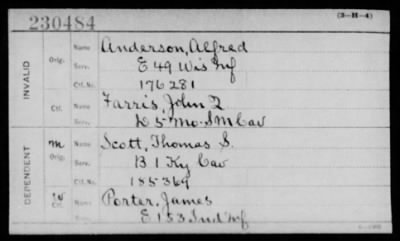 230484 (3-H-4)
INVALID
Orig. Name Anderson, Alfred
Serv. E 49 Wis Inf
Ctf. No. 176281
Ctf. Name Farris, John
Serv. K 5 Mo. S M Cav
DEPENDENT
m Orig. Name Scott, Thomas S.
Serv. B 1 Ky Cav
Ctf. No. 185369
W Ctf. Name Porter, James
Serv. E 153 Ind Inf